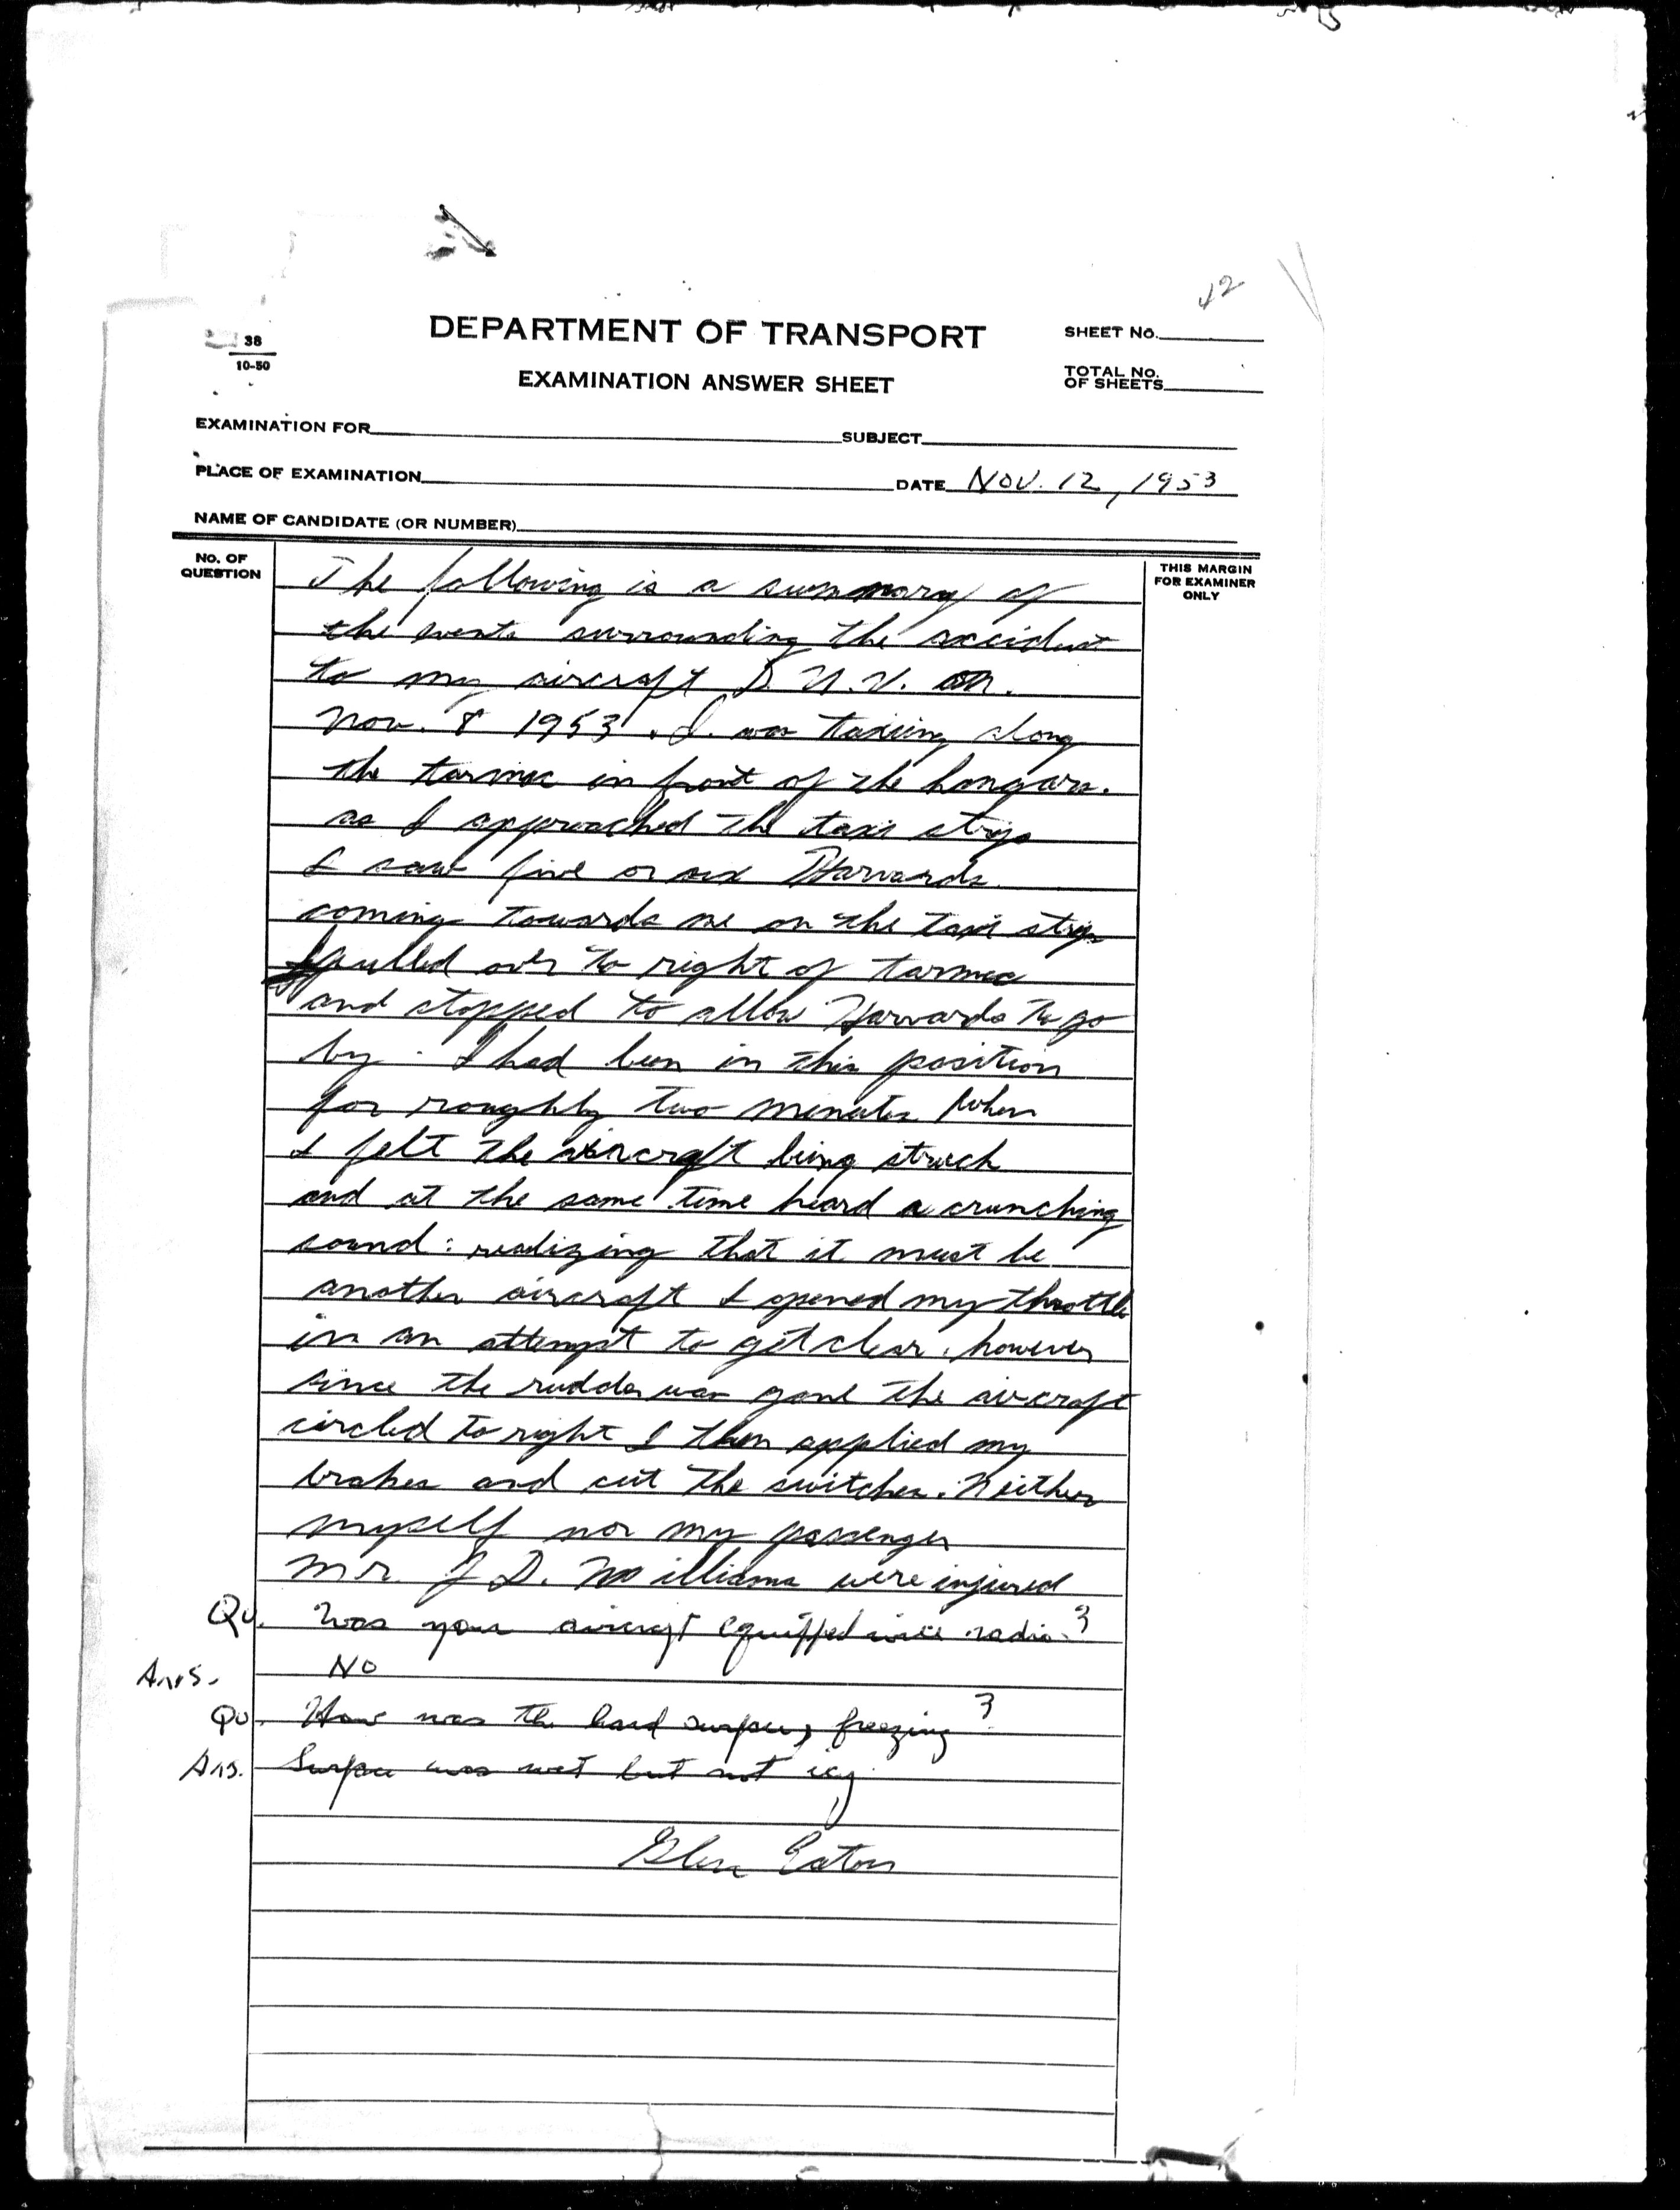 42
38
10-50
DEPARTMENT OF TRANSPORT
EXAMINATION ANSWER SHEET
SHEET No.
TOTAL NO.
OF SHEETS
EXAMINATION FOR SUBJECT
PLACE OF EXAMINATION DATE NOV. 12, 1953
NAME OF CANDIDATE (OR NUMBER)
No. OF
QUESTION
THIS MARGIN
FOR EXAMINER
ONLY
The following is a summary of
the events surrounding the accident
to my aircraft D.N.V. on.
Nov. 8 1953. I was taxiing along
the tarmac in front of the hangars.
as I approached the taxi strip
I saw five or six Harvards
coming towards me on the taxi strip
I pulled over to right of tarmac
and stopped to allow Harvards to go
by. I had been in this position
for roughly two minutes when
I felt the aircraft being struck
and at the same time heard a crunching
sound: realizing that it must be
another aircraft I opened my throttle
in an attempt to get clear. however
since the rudder was gone the aircraft
circled to right I then applied my
brakes and cut the switches. Neither
myself nor my passenger
Mr. J D. were injured
Qu. Was your aircraft equipped with radio?
Ans. No
Qu. How was the hard surface, freezing?
Ans. Surface was wet but not icy
Glen Eaton